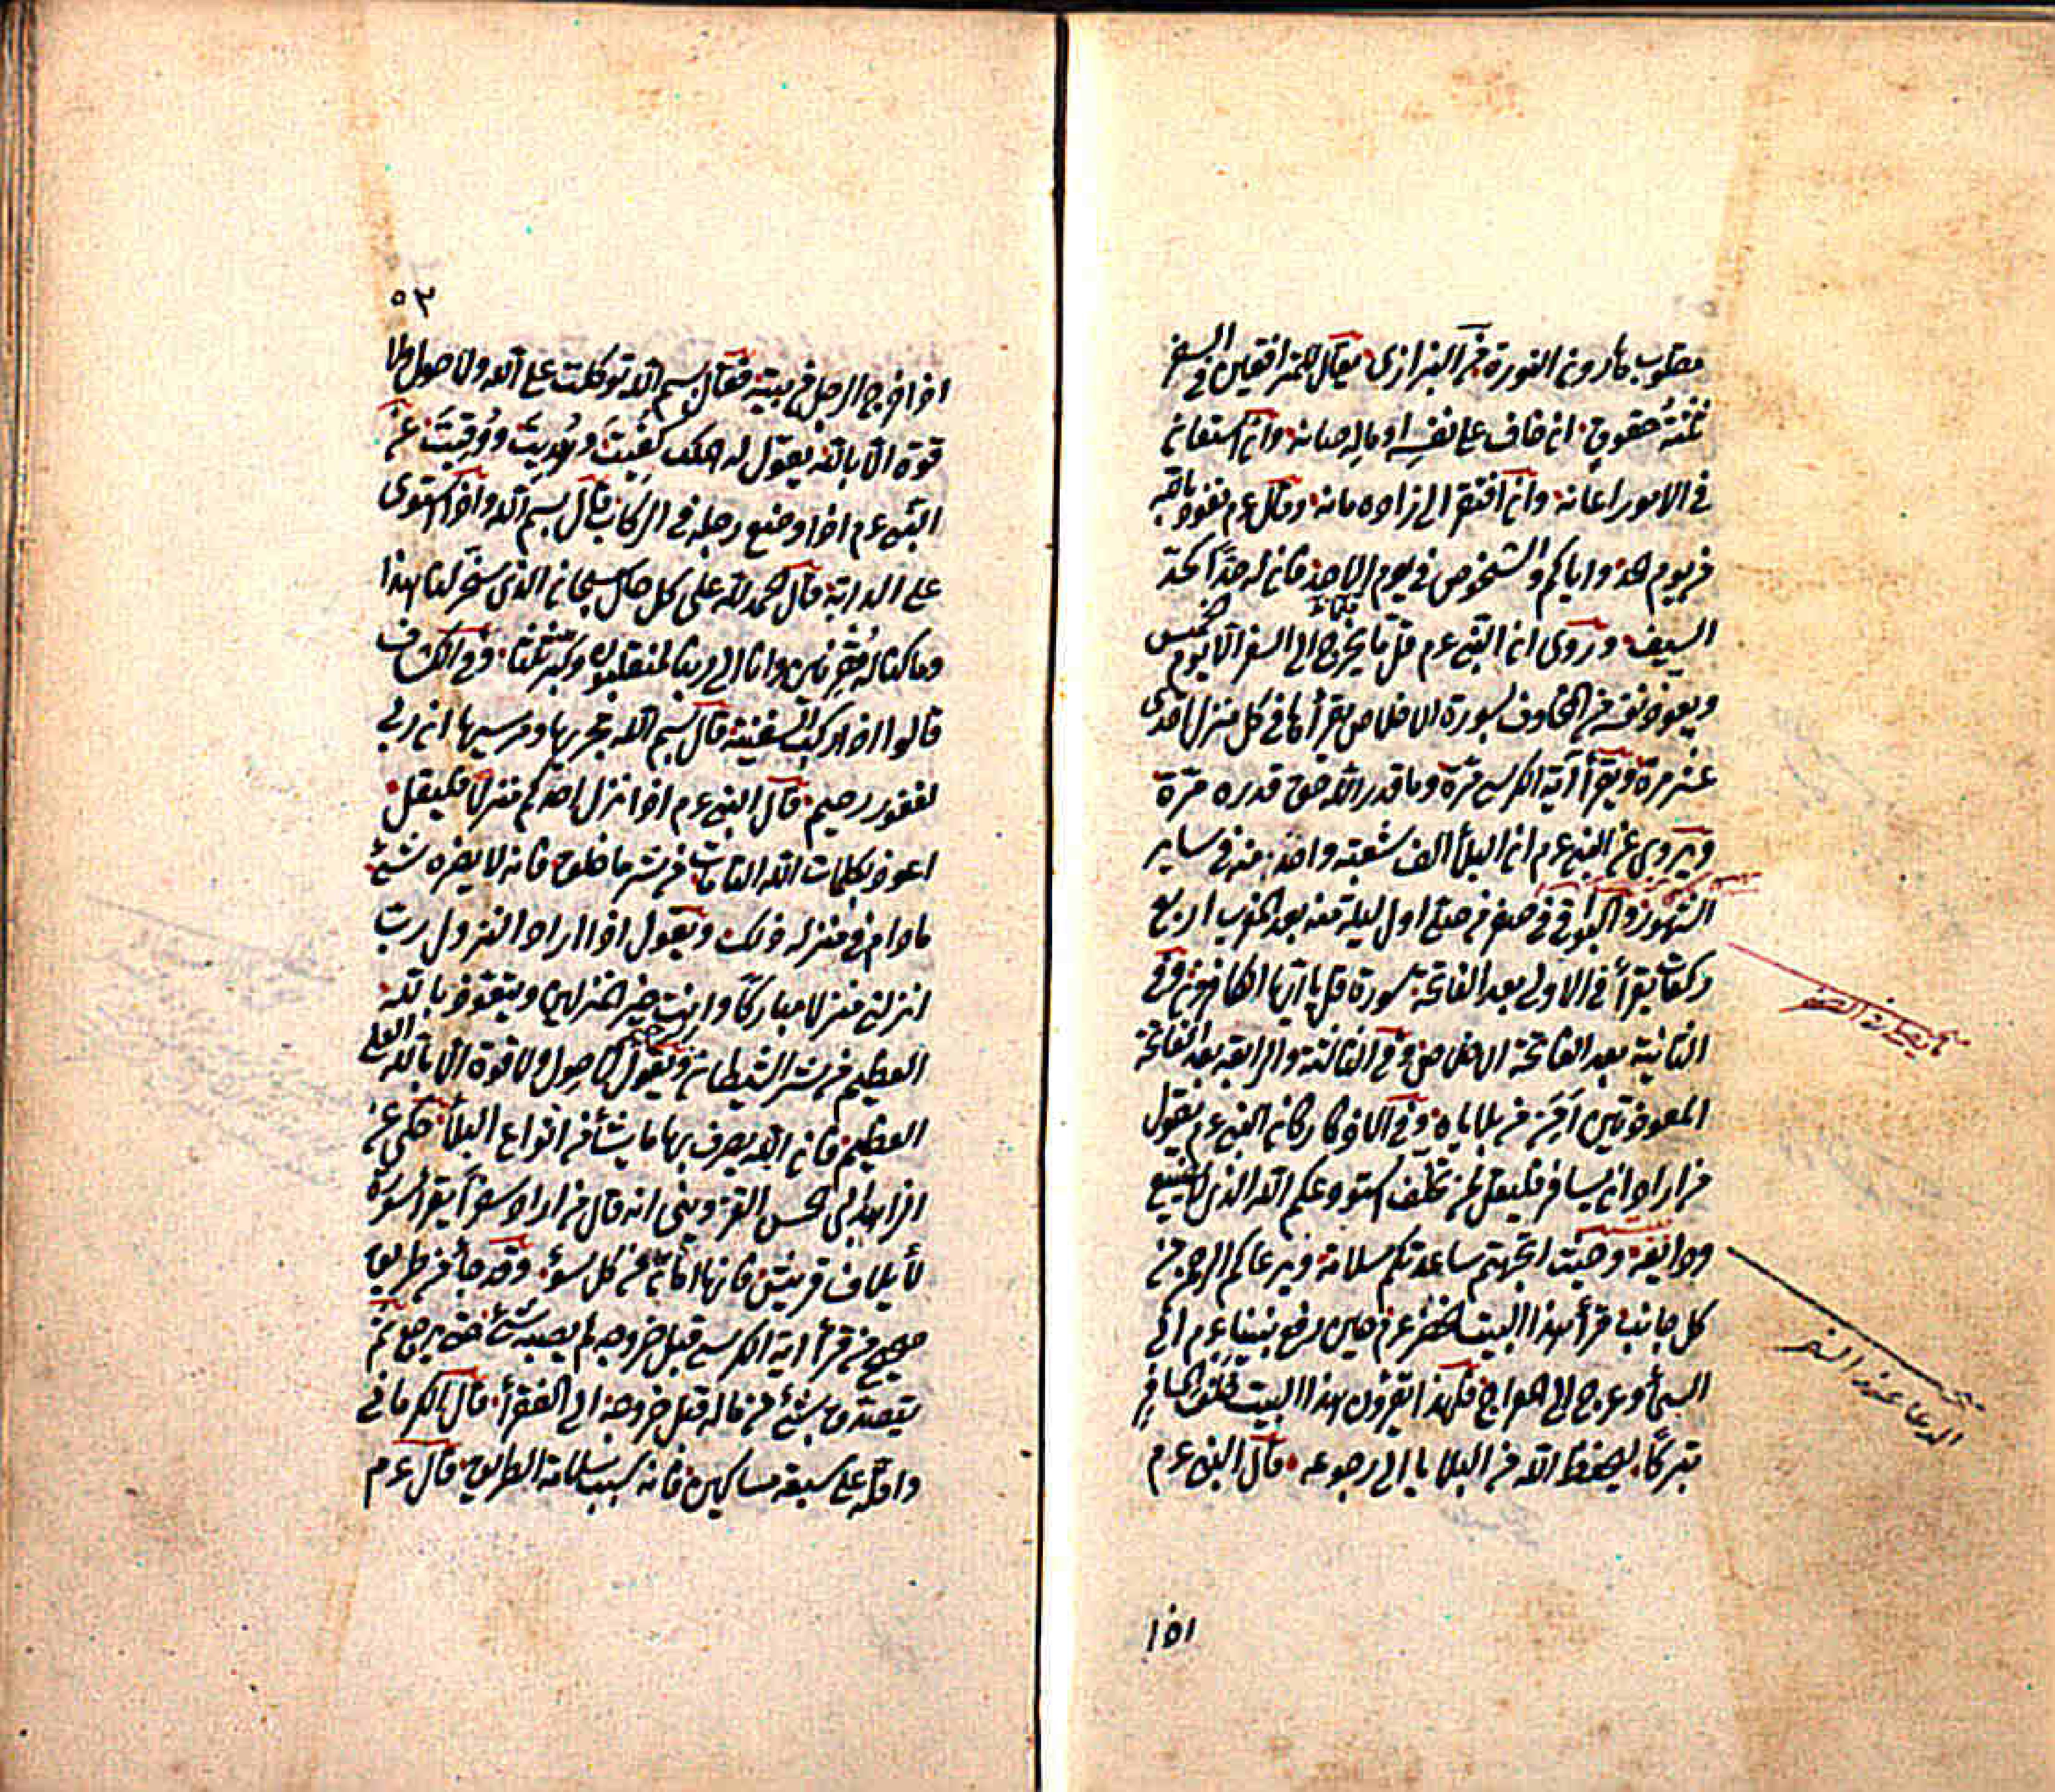 مطلوب هارون الغورة من البزازى يقال للمترافقين فى السفر
ثلثة حقوق ان خاف على نفسه او ماله صانه وان استعانه
فى الامور اعانه وان افتقر الى زاده مانه وقال عم نعوذ بالله
من يوم الاحد واياكم والشخوص فى يوم الاحد فان له حدّا كحدّ
السيف وروى ان النبى عم قل ما يخرج الى السفر الا يوم خميس
ويعوذ نفسه من المخاوف بسورة الاخلاص يقرأها فى كل منزل احدى
عشر مرة ويقرأ آية الكرسى مرة وما قدروا الله حق قدره مرة
ويروى عن النبى عم ان البلأ الف شعبة واحد منه فى ساير
الشهور والبواقى فى صفر من صلى اول ليلة منه بعد المغرب اربع
ركعات يقرأ فى الاولى بعد الفاتحة سورة قل يا ايها الكافرون وفى
الثانية بعد الفاتحة الاخلاص وفى الثالثة والرابعة بعد الفاتحة
المعوذتين اَمِنَ من بلاياه وفى الاذكار كان النبى عم يقول
من اراد ان يسافر فليقل لمن تخلف استودعكم الله الذى لا تضيع
ودايعه وحيث اتجهتم ساعدتكم سلامة ويرعاكم الرحمن من
كل جانب قرأ هذا البيت خضر عم حين رفع نبينا عم الى
السمأ وعرج الى المعراج فلهذا يقرؤن هذا البيت خلف المسافر
تبركًا ليحفظ الله من البلايا الى رجوعه قال النبى عم
الدعا عند السفر
اذا
٥٣
اذا خرج الرجل من بيته فقال بسم الله توكلت على الله ولا حول ولا
قوة الا بالله يقول له الملك كُفيتَ وهُديتَ ووُقيتَ عن
النبى عم اذا وضع رجله فى الركاب قال بسم الله واذا استوى
على الدابة قال الحمد لله على كل حال سبحان الذى سخر لنا هذا
وما كنا له مقرنين وانا الى ربنا لمنقلبون وكبر ثلثا وفى الكشاف
قالوا اذا ركب السفينة قال بسم الله مجريها ومرسيها ان ربى
لغفور رحيم قال النبى عم اذا نزل احدكم منزلا فليقل
اعوذ بكلمات الله التامات من شر ما خلق فانه لا يضره شئ
مادام فى منزله ذلك ويقول اذا اراد النزول رب
انزلنى منزلا مباركًا وانت خير المنزلين ويتعوذ بالله
العظيم من شر الشيطان الرجيم ويقول لا حول ولا قوة الا بالله العلى
العظيم فان الله يصرف بها ما يشأ من انواع البلأ حكى عن
ابى الحسن القزوينى انه قال من اراد سفرا يقرأ سورة
لأيلاف قريش فانها امان من كل سوء وقد جأ من طريق
صحيح من قرأ اية الكرسى قبل خروجه لم يصبه شئ حتى يرجع ثم
يتصدق بشئ من ماله قبل خروجه الى الفقرأ قال الكرمانى
واقله على سبعة مساكين فانه سبب سلامة الطريق قال عم